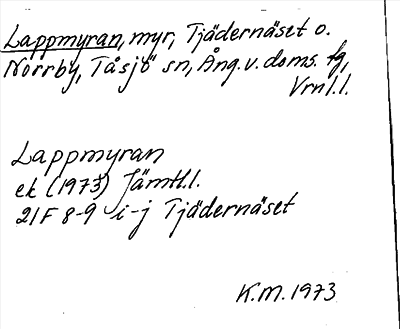 Lappmyran, myr, Tjädernäset o.
Norrby, Tåsjö sn, Ång. v. doms. fg,
Vrnl.l.
Lappmyran
ek (1973) Jämtl.l.
21F 8-9 i-j Tjädernäset
K.M. 1973